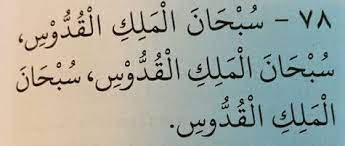 ٧٨ - سُبْحَانَ الْمَلِكِ الْقُدُّوْسِ،
سُبْحَانَ الْمَلِكِ الْقُدُّوْسِ، سُبْحَانَ
الْمَلِكِ الْقُدُّوْسِ.